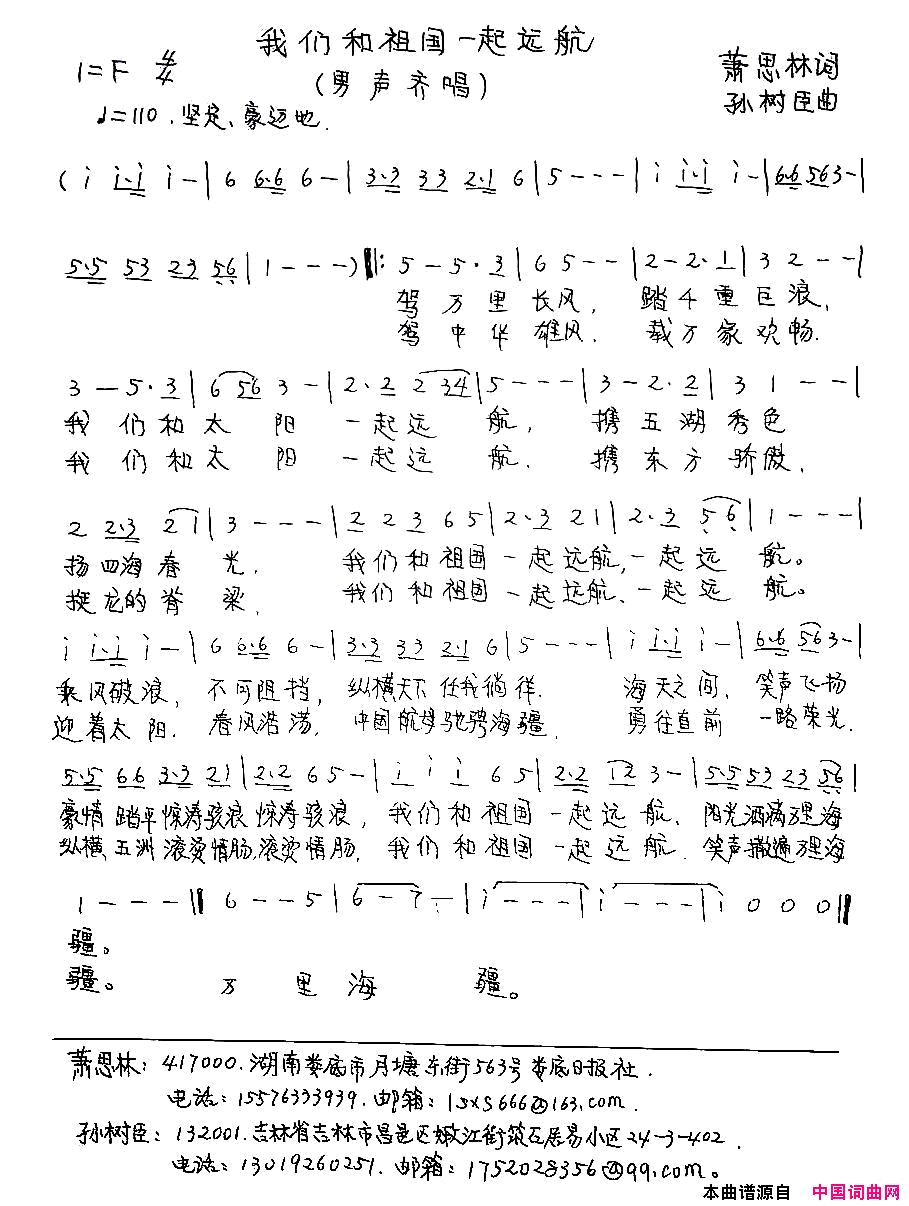 我们和祖国一起远航
1=F 4/4
(男声齐唱)
萧思林词
♩=110. 坚定、豪迈地.
孙树臣曲
( i i·i i - | 6 6·6 6 - | 3·3 33 2·1 6 | 5 - - - | i i·i i - | 6·6 563 - |
5·5 53 23 56 | 1 - - - ) ‖: 5 - 5·3 | 6 5 - - | 2 - 2·1 | 3 2 - - |
驾万里长风, 踏千重巨浪,
驾中华雄风. 载万家欢畅.
3 - 5·3 | 6 56 3 - | 2·2 2 34 | 5 - - - | 3 - 2·2 | 3 1 - - |
我们和太阳一起远航, 携五湖秀色
我们和太阳一起远航. 携东方骄傲,
2 2·3 2 1 | 3 - - - | 2 2 3 6 5 | 2·3 2 1 | 2·3 56 | 1 - - - |
扬四海春光. 我们和祖国一起远航,一起远航。
挺龙的脊梁, 我们和祖国一起远航、一起远航。
i i·i i - | 6 6·6 6 - | 3·3 33 2·1 6 | 5 - - - | i i·i i - | 6·6 563 - |
乘风破浪, 不可阻挡, 纵横天下任我徜徉. 海天之间, 笑声飞扬
迎着太阳. 春风浩荡, 中国航母驰骋海疆. 勇往直前 一路荣光.
5·5 66 3·3 21 | 2·2 6 5 - | i i i 6 5 | 2·2 12 3 - | 5·5 53 23 56 |
豪情踏平惊涛骇浪惊涛骇浪, 我们和祖国一起远航. 阳光洒满万里海
纵横五洲滚烫情肠,滚烫情肠, 我们和祖国一起远航. 笑声撒遍万里海
1 - - - ‖ 6 - - 5 | 6 - 7 - | i - - - | i - - - | i 0 0 0 ‖
疆。
疆。 万里海疆。
萧思林: 417000. 湖南娄底市月塘东街563号娄底日报社.
电话: 15576333939. 邮箱: lsxs666@163.com.
孙树臣: 132001. 吉林省吉林市昌邑区嫩江街筑石居易小区24-3-402.
电话: 13019260251. 邮箱: 1752028356@qq.com。
本曲谱源自 中国词曲网